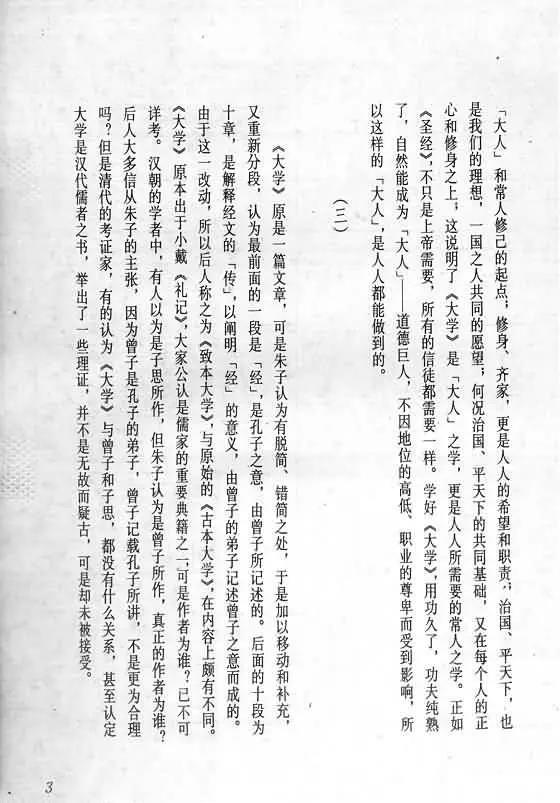 「大人」和常人修己的起点；修身、齐家，更是人人的希望和职责；治国、平天下，也
是我们的理想，一国之人共同的愿望；何况治国、平天下的共同基础，又在每个人的正
心和修身之上，这说明了《大学》是「大人」之学，更是人人所需要的常人之学。正如
《圣经》，不只是上帝需要，所有的信徒都需要一样。学好《大学》，用功久了，功夫纯熟
了，自然能成为「大人」——道德巨人，不因地位的高低、职业的尊卑而受到影响，所
以这样的「大人」，是人人都能做到的。
（三）
《大学》原是一篇文章，可是朱子认为有脱简、错简之处，于是加以移动和补充，
又重新分段，认为最前面的一段是「经」，是孔子之意，由曾子所记述的。后面的十段为
十章，是解释经文的「传」，以阐明「经」的意义，由曾子的弟子记述曾子之意而成的。
由于这一改动，所以后人称之为《致本大学》，与原始的《古本大学》，在内容上颇有不同。
《大学》原本出于小戴《礼记》，大家公认是儒家的重要典籍之一，可是作者为谁？已不可
详考。汉朝的学者中，有人以为是子思所作，但朱子认为是曾子所作，真正的作者为谁？
后人大多信从朱子的主张，因为曾子是孔子的弟子，曾子记载孔子所讲，不是更为合理
吗？但是清代的考证家，有的认为《大学》与曾子和子思，都没有什么关系，甚至认定
大学是汉代儒者之书，举出了一些理证，并不是无故而疑古，可是却未被接受。
3